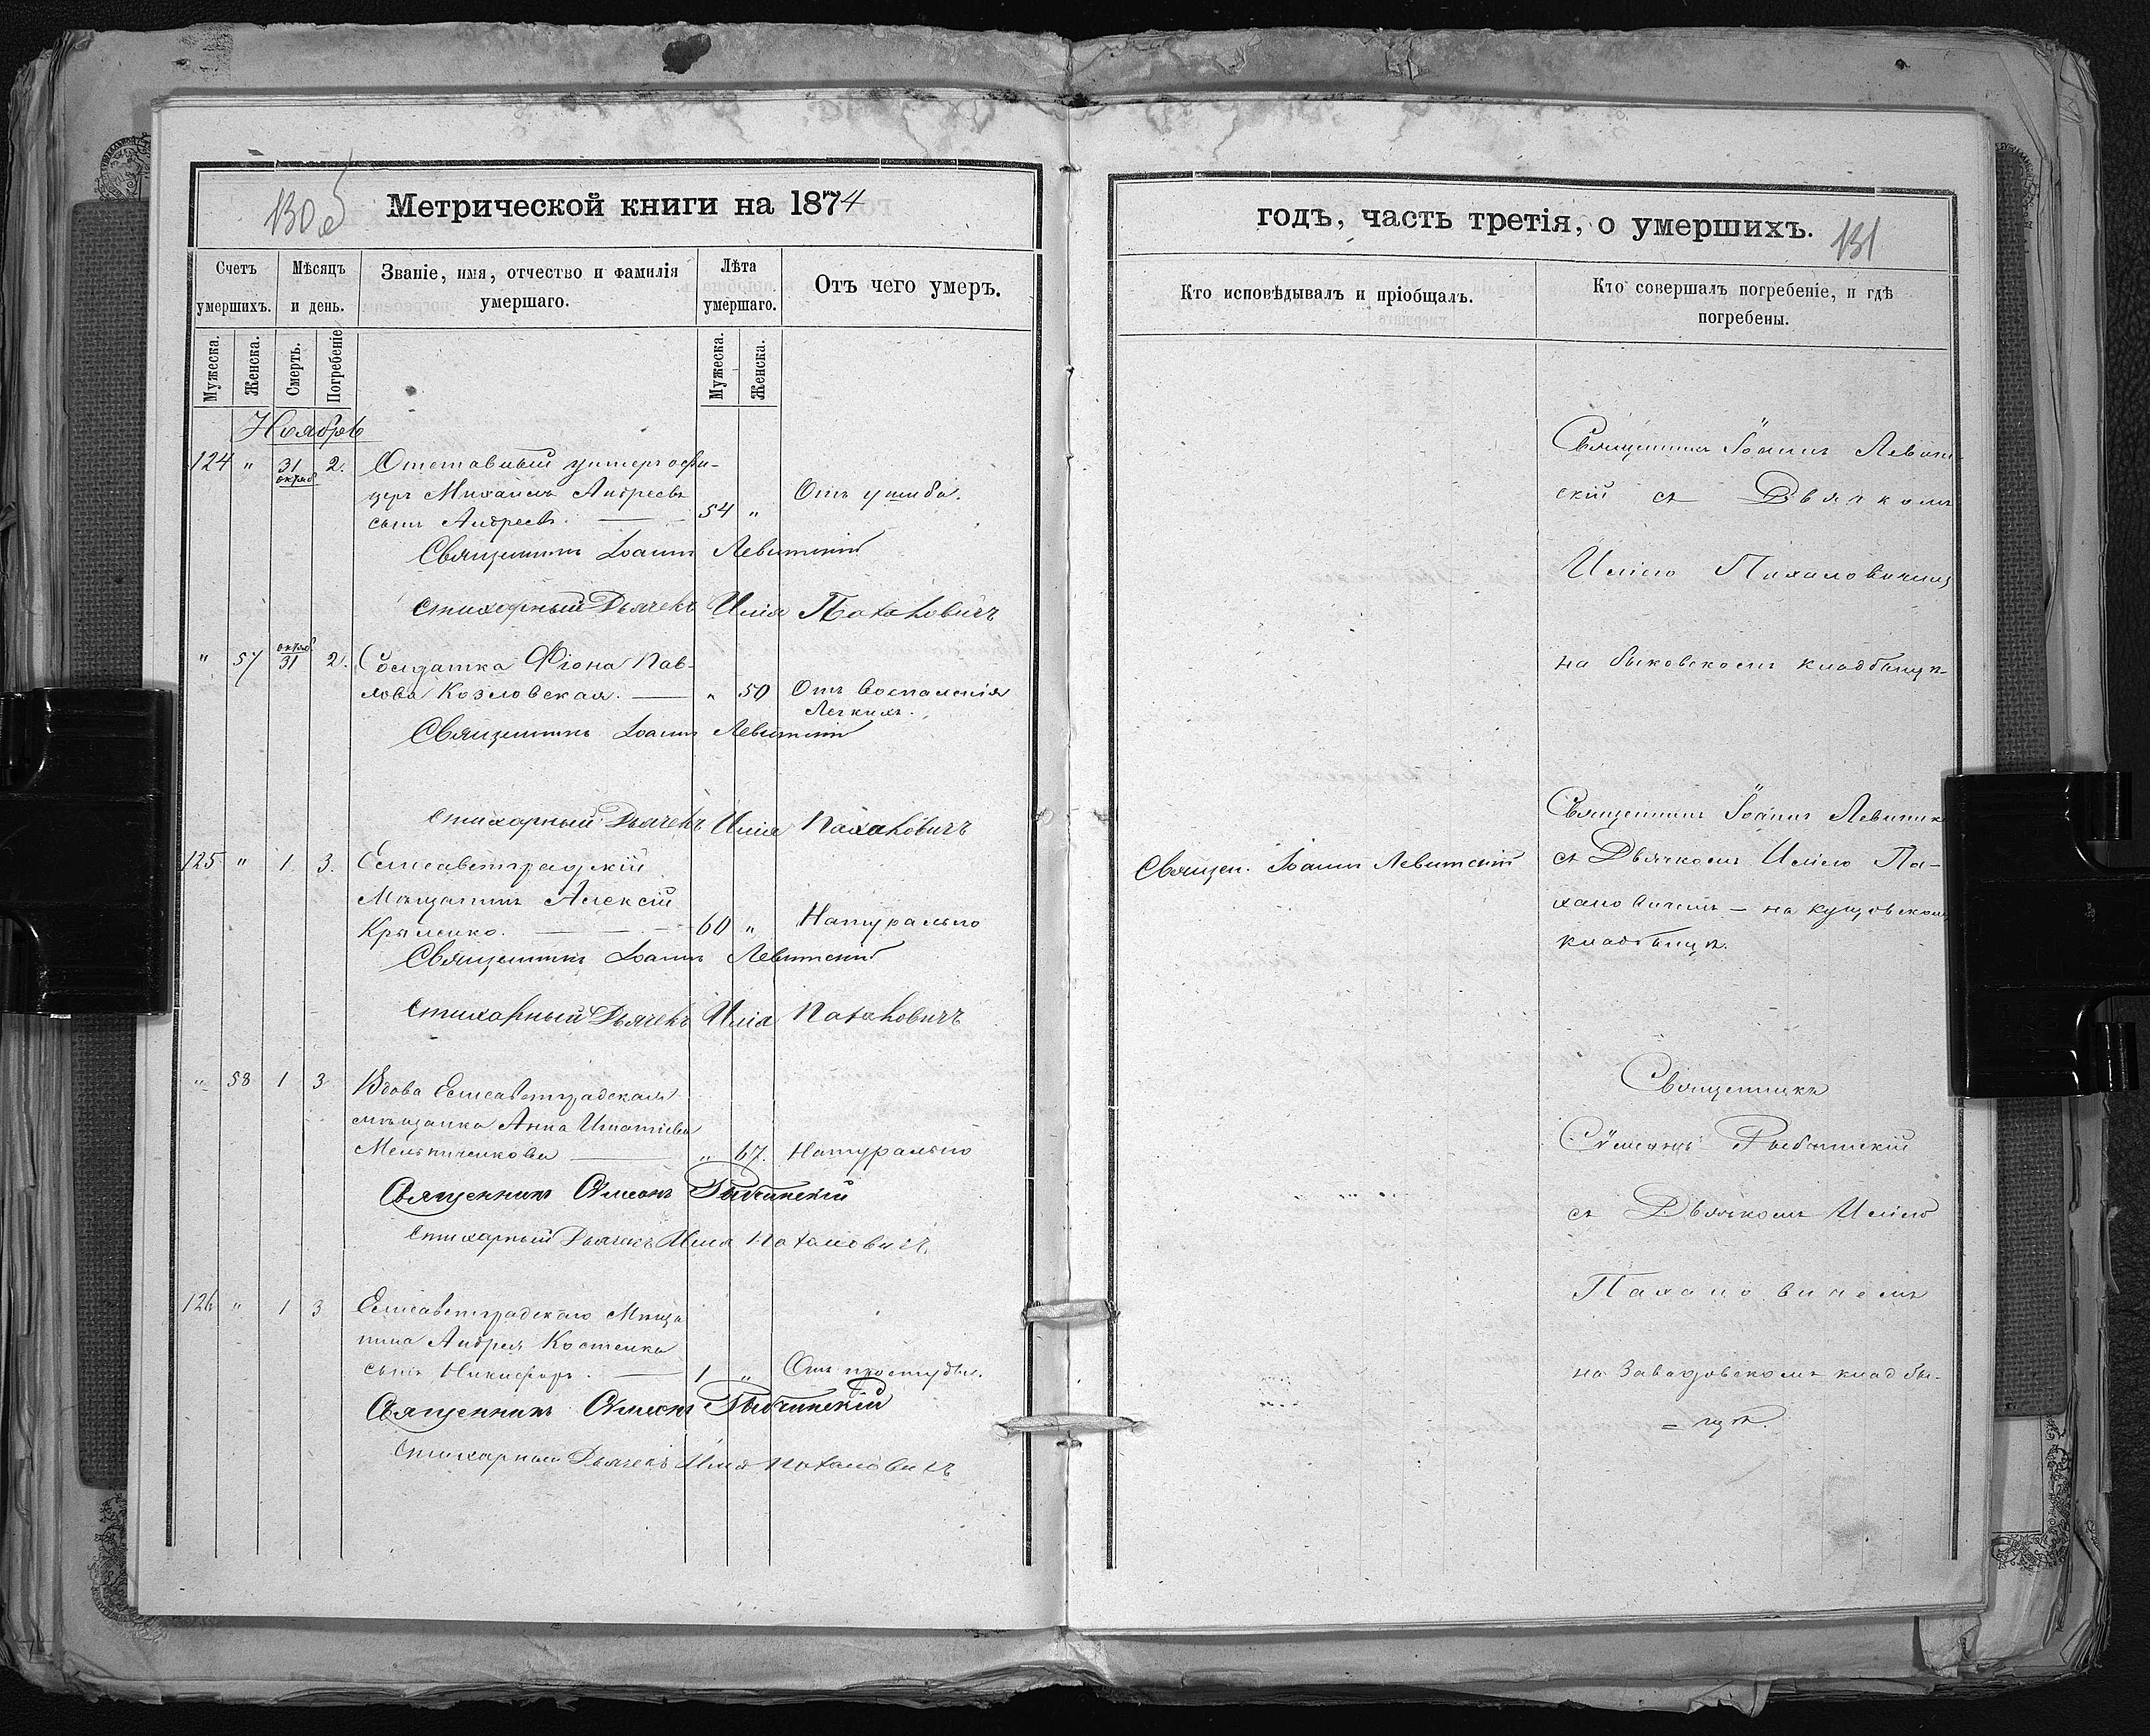 130 об
Метрической книги на 1874
Счетъ умершихъ.
Мѣсяцъ и день.
Званіе, имя, отчество и фамилія умершаго.
Лѣта умершаго.
Отъ чего умеръ.
Мужеска.
Женска.
Смерть.
Погребеніе
Мужеска.
Женска.
Ноябрь
124 " 31 октяб 2. Отставный унтеръ офи-
церъ Михаилъ Андреевъ
сынъ Андреевъ. 54 " Отъ ушиба.
Священникъ Іоаннъ Левитскій
Стихарный Дьячекъ Илія Пахаловичъ
" 57 октяб 31 2. Солдатка Фіона Пав-
лова Козловская. " 50 Отъ воспаленія
Легкихъ.
Священникъ Іоаннъ Левитскій
Стихарный Дьячекъ Илія Пахаловичъ
125 " 1 3. Елисаветградскій
Мѣщанинъ Алексій
Крыленко. 60 " Натурально
Священникъ Іоаннъ Левитскій
Стихарный Дьячекъ Илія Пахаловичъ
" 58 1 3 Вдова Елисаветградская
мѣщанка Анна Игнатіева
Мельниченкова " 67. Натурально
Священникъ Сѵмеонъ Рыбчинскій
Стихарный Дьячекъ Илія Пахаловичъ
126 " 1 3 Елисаветградскаго Мѣща
нина Андрея Костенка
сынъ Никифоръ. 1 " Отъ простуды.
Священникъ Сѵмеонъ Рыбчинскій
Стихарный Дьячекъ Илія Пахаловичъ
годъ, часть третія, о умершихъ.
131
Кто исповѣдывалъ и пріобщалъ.
Кто совершалъ погребеніе, и гдѣ
погребены.
Священникъ Іоаннъ Левит-
скій съ Дьячкомъ
Иліею Пахаловичемъ
на быковскомъ кладбищѣ
Священникъ Іоаннъ Левитск
Священ. Іоаннъ Левитскій
съ Дьячкомъ Иліею Па-
халовичемъ – на кущовскомъ
кладбищѣ.
Священникъ
Сѵмеонъ Рыбчинскій
съ Дьячкомъ Иліею
Пахаловичемъ
на Завадовскомъ кладби-
= щѣ.